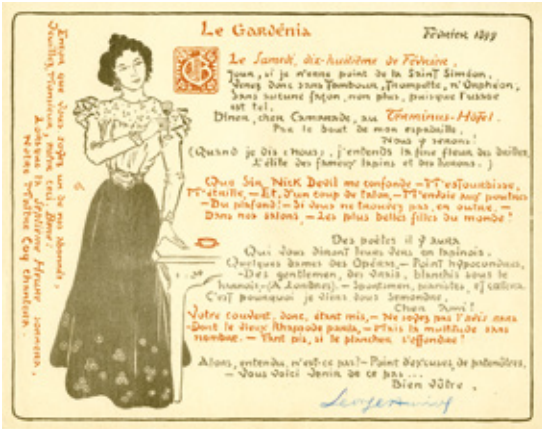 Le Gardénia
Février 1899
Le Samedi, dix-huitième de Février,
Jour, si je n'erre point de la Saint Siméon,
Venez donc sans Tambour, Trompette, n'Orphéon,
Sans aucune façon, non plus, puisque l'usage
est tel,
Dîner, cher Camarade, au Terminus-Hôtel.
Par le bout de mon espadrille,
Nous y serons!
(Quand je dis: nous, j'entends la fine fleur des
L'élite des fameux lapins et des lurons.)
Que Sir Nick Devil me confonde — M'estourbisse,
M'étrille, — Et, d'un coup de talon, — M'envoie aux poutres
— Du plafond! — Si vous ne trouvez pas, en outre,
Dans nos salons, — Les plus belles filles du monde!
Des poètes il y aura
Qui vous diront leurs vers en tapinois.
(Quelques dames des Opéras, — Point hypocondres,
— Des gentlemen, des vrais, blanchis sous le
harnois, — (A Londres). — Sportsmen, pianistes, et cætera
C'est pourquoi je viens vous semondre,
Cher Ami!
Votre couvert, donc, étant mis, — Ne soyez pas l'avis rare
— Dont le vieux Rhapsode parla, — Mais la multitude sans
nombre. — Tant pis, si le plancher s'effondre!
Alors, entendu, n'est-ce pas? — Point d'excuses, de patenôtres,
— Vous voici venir de ce pas...
Bien vôtre,
Encor que vous soyez un de nos abonnés,
Veuillez, Monsieur, noter ceci: Venez
Lorsque la Septième Heure sonnera,
Notre Maître Coq chantera.